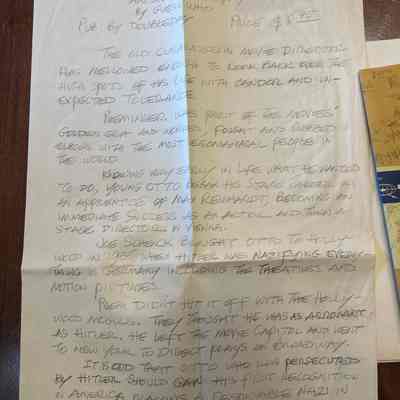 BY GUESS WHO
PUB BY DOUBLEDAY PRICE OF $
THE OLD CURMUDGEON MOVIE DIRECTOR
HAS MELLOWED ENOUGH TO LOOK BACK OVER THE
HIGH SPOTS OF HIS LIFE WITH CANDOR AND UN-
EXPECTED TOLERANCE
PREMINGER WAS PART OF THE MOVIES'
GOLDEN ERA AND WORKED, FOUGHT AND RUBBED
ELBOWS WITH THE MOST EGOMANIACAL PEOPLE IN
THE WORLD
KNOWING VERY EARLY IN LIFE WHAT HE WANTED
TO DO, YOUNG OTTO BEGAN HIS STAGE CAREER AS
AN APPRENTICE OF MAX REINHARDT, BECOMING AN
IMMEDIATE SUCCESS AS AN ACTOR AND THEN A
STAGE DIRECTOR IN VIENNA.
JOE SCHENCK BROUGHT OTTO TO HOLLY-
WOOD IN WHEN HITLER WAS NAZIFYING EVERY-
THING IN GERMANY INCLUDING THE THEATRES AND
MOTION PICTURES.
DIDN'T HIT IT OFF WITH THE HOLLY-
WOOD MOGULS. THEY THOUGHT HE WAS AS ARROGANT
AS HITLER. HE LEFT THE MOVIE CAPITOL AND WENT
TO NEW YORK TO DIRECT PLAYS ON BROADWAY.
IT IS ODD THAT OTTO WHO WAS PERSECUTED
BY HITLER SHOULD GAIN HIS FIRST RECOGNITION
IN AMERICA NAZI IN